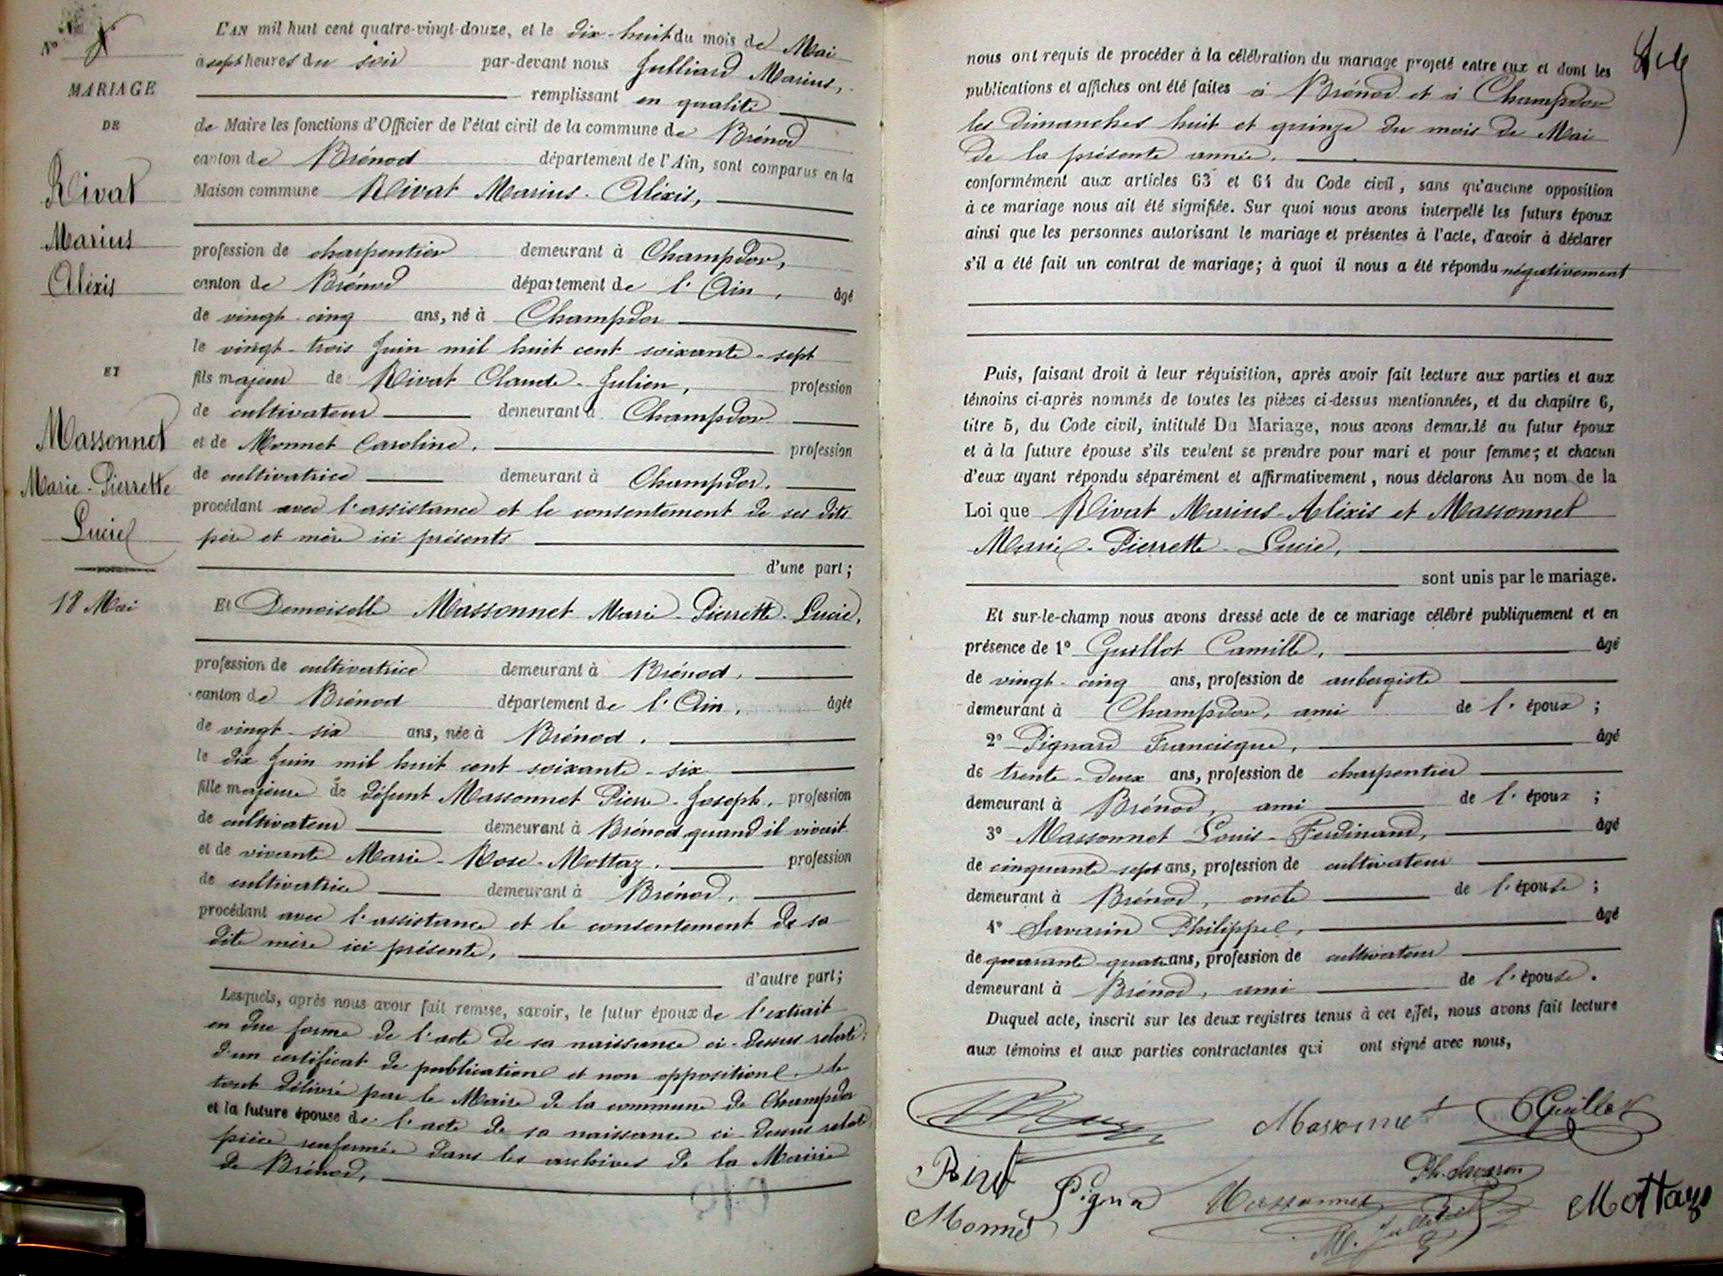 L'AN mil huit cent quatre-vingt-douze, et le dix-huit du mois de Mai
à sept heures du soir par-devant nous Julliard Marius,
remplissant en qualité
de Maire les fonctions d'Officier de l'état civil de la commune de Brénod
canton de Brénod département de l'Ain, sont comparus en la
Maison commune Rivat Marius-Aléxis,
profession de charpentier demeurant à Champdor,
canton de Brénod département de l'Ain, âgé
de vingt-cinq ans, né à Champdor
le vingt-trois Juin mil huit cent soixante-sept
fils majeur de Rivat Claude-Julien, profession
de cultivateur demeurant à Champdor
et de Monnet Caroline, profession
de cultivatrice demeurant à Champdor,
procédant avec l'assistance et le consentement de ses dits
père et mère ici présents
d'une part;
Et Demoiselle Massonnet Marie-Pierrette-Lucie,
profession de cultivatrice demeurant à Brénod,
canton de Brénod département de l'Ain, âgée
de vingt-six ans, née à Brénod,
le dix Juin mil huit cent soixante-six
fille majeure de défunt Massonnet Pierre-Joseph, profession
de cultivateur demeurant à Brénod quand il vivait
et de vivante Marie-Rose-Mottaz, profession
de cultivatrice demeurant à Brénod,
procédant avec l'assistance et le consentement de sa
dite mère ici présente,
d'autre part;
Lesquels, après nous avoir fait remise, savoir, le futur époux de l'extrait
en due forme de l'acte de sa naissance ci-dessus relaté;
d'un certificat de publication et non opposition, le
tout délivré par le Maire de la commune de Champdor
et la future épouse de l'acte de sa naissance ci-dessus relaté
pièce renfermée dans les archives de la Mairie
de Brénod,
No
MARIAGE
DE
Rivat
Marius
Aléxis
ET
Massonnet
Marie-Pierrette
Lucie
18 Mai
nous ont requis de procéder à la célébration du mariage projeté entre eux et dont les
publications et affiches ont été faites à Brénod et à Champdor
les dimanches huit et quinze du mois de Mai
de la présente année,
conformément aux articles 63 et 64 du Code civil, sans qu'aucune opposition
à ce mariage nous ait été signifiée. Sur quoi nous avons interpellé les futurs époux
ainsi que les personnes autorisant le mariage et présentes à l'acte, d'avoir à déclarer
s'il a été fait un contrat de mariage; à quoi il nous a été répondu négativement
Puis, faisant droit à leur réquisition, après avoir fait lecture aux parties et aux
témoins ci-après nommés de toutes les pièces ci-dessus mentionnées, et du chapitre 6,
titre 5, du Code civil, intitulé Du Mariage, nous avons demandé au futur époux
et à la future épouse s'ils veulent se prendre pour mari et pour femme; et chacun
d'eux ayant répondu séparément et affirmativement, nous déclarons Au nom de la
Loi que Rivat Marius-Aléxis et Massonnet
Marie-Pierrette-Lucie,
sont unis par le mariage.
Et sur-le-champ nous avons dressé acte de ce mariage célébré publiquement et en
présence de 1º Guillot Camille, âgé
de vingt-cinq ans, profession de aubergiste
demeurant à Champdor, ami de l'époux;
2º Pignard Francisque, âgé
de trente-deux ans, profession de charpentier
demeurant à Brénod, ami de l'époux;
3º Massonnet Louis-Ferdinand, âgé
de cinquante sept ans, profession de cultivateur
demeurant à Brénod, oncle de l'épouse;
4º Savarin Philippe, âgé
de quarante quatre ans, profession de cultivateur
demeurant à Brénod, ami de l'épouse.
Duquel acte, inscrit sur les deux registres tenus à cet effet, nous avons fait lecture
aux témoins et aux parties contractantes qui ont signé avec nous,
Massonnet CGuillot
Rivat
Ph. Savarin
Pigna
Massonnet
Mottaz
Monnet
M. Julliard